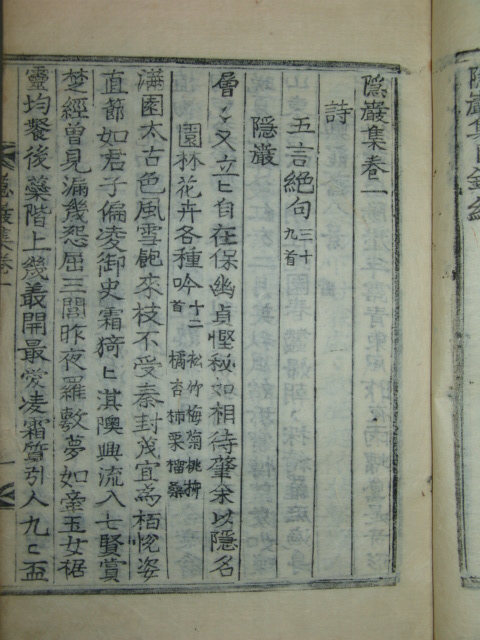 隱巖集目錄終
隱巖集卷一
詩
五言絶句三十九首
隱巖
層〻又立〻自在保幽貞慳秘如相待肇余以隱名
園林花卉各種吟十二首松竹梅菊桃柳橘杏柿栗榴桑
滿園太古色風雪飽來枝不受秦封茂宜爲栢悅姿
直節如君子偏凌御史霜猗〻淇澳興流入七賢賞
楚經曾見漏幾怨屈三閭昨夜羅敷夢如牽玉女裾
靈均餐後藥階上幾叢開最愛凌霜質引人九〻盃
隱巖集卷一
一